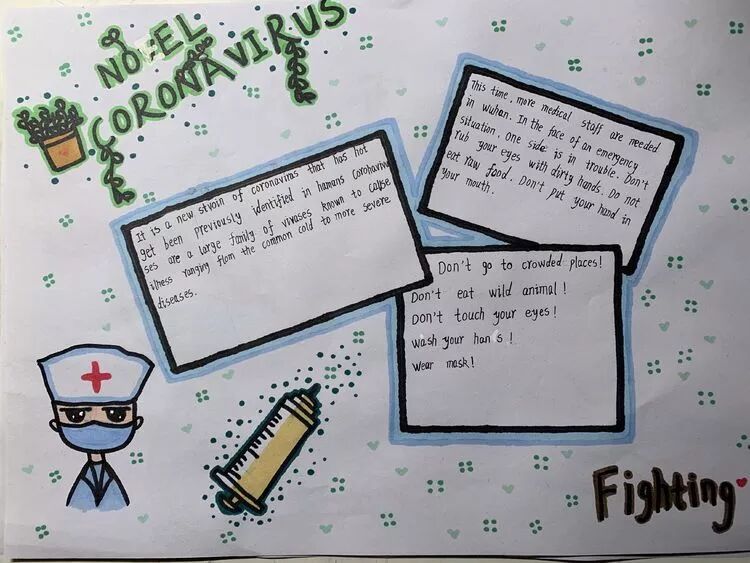 NOVEL
CORONAVIRUS
It is a new stvoin of coronavirus that has hot
get been previously identified in humans Coronavivu
ses are a large family of vivases known to calpse
illness ranging flom the common cold to more severe
diseases.
This time, more medical staff are needed
in wuhan. In the face of an emergency
situation. One side is in trouble. Don't
rub your eyes with dirty hands. Do not
eat raw food. Don't put your hand in
your mouth.
Don't go to crowded places!
Don't eat wild animal!
Don't touch your eyes!
Wash your hands!
Wear mask!
Fighting